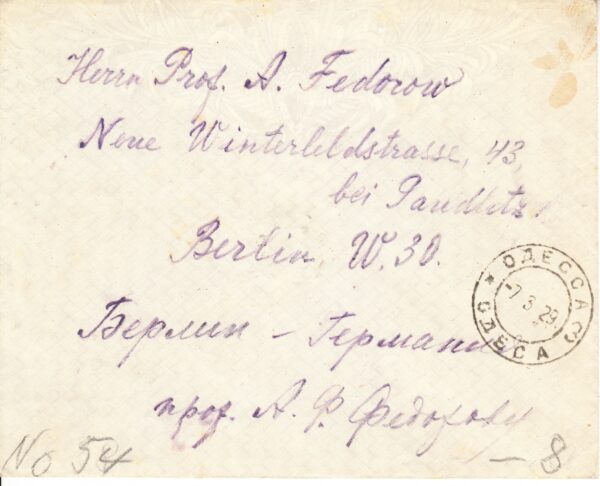 Herrn Prof. A. Fedorow
Neue Winterleldstrasse, 43,
bei
Berlin, W. 30.
* ОДЕССА 3
-7.3.29.
ОДЕСА
Берлин – Германия
проф. А. Ф. Федорову
No 54
– 8